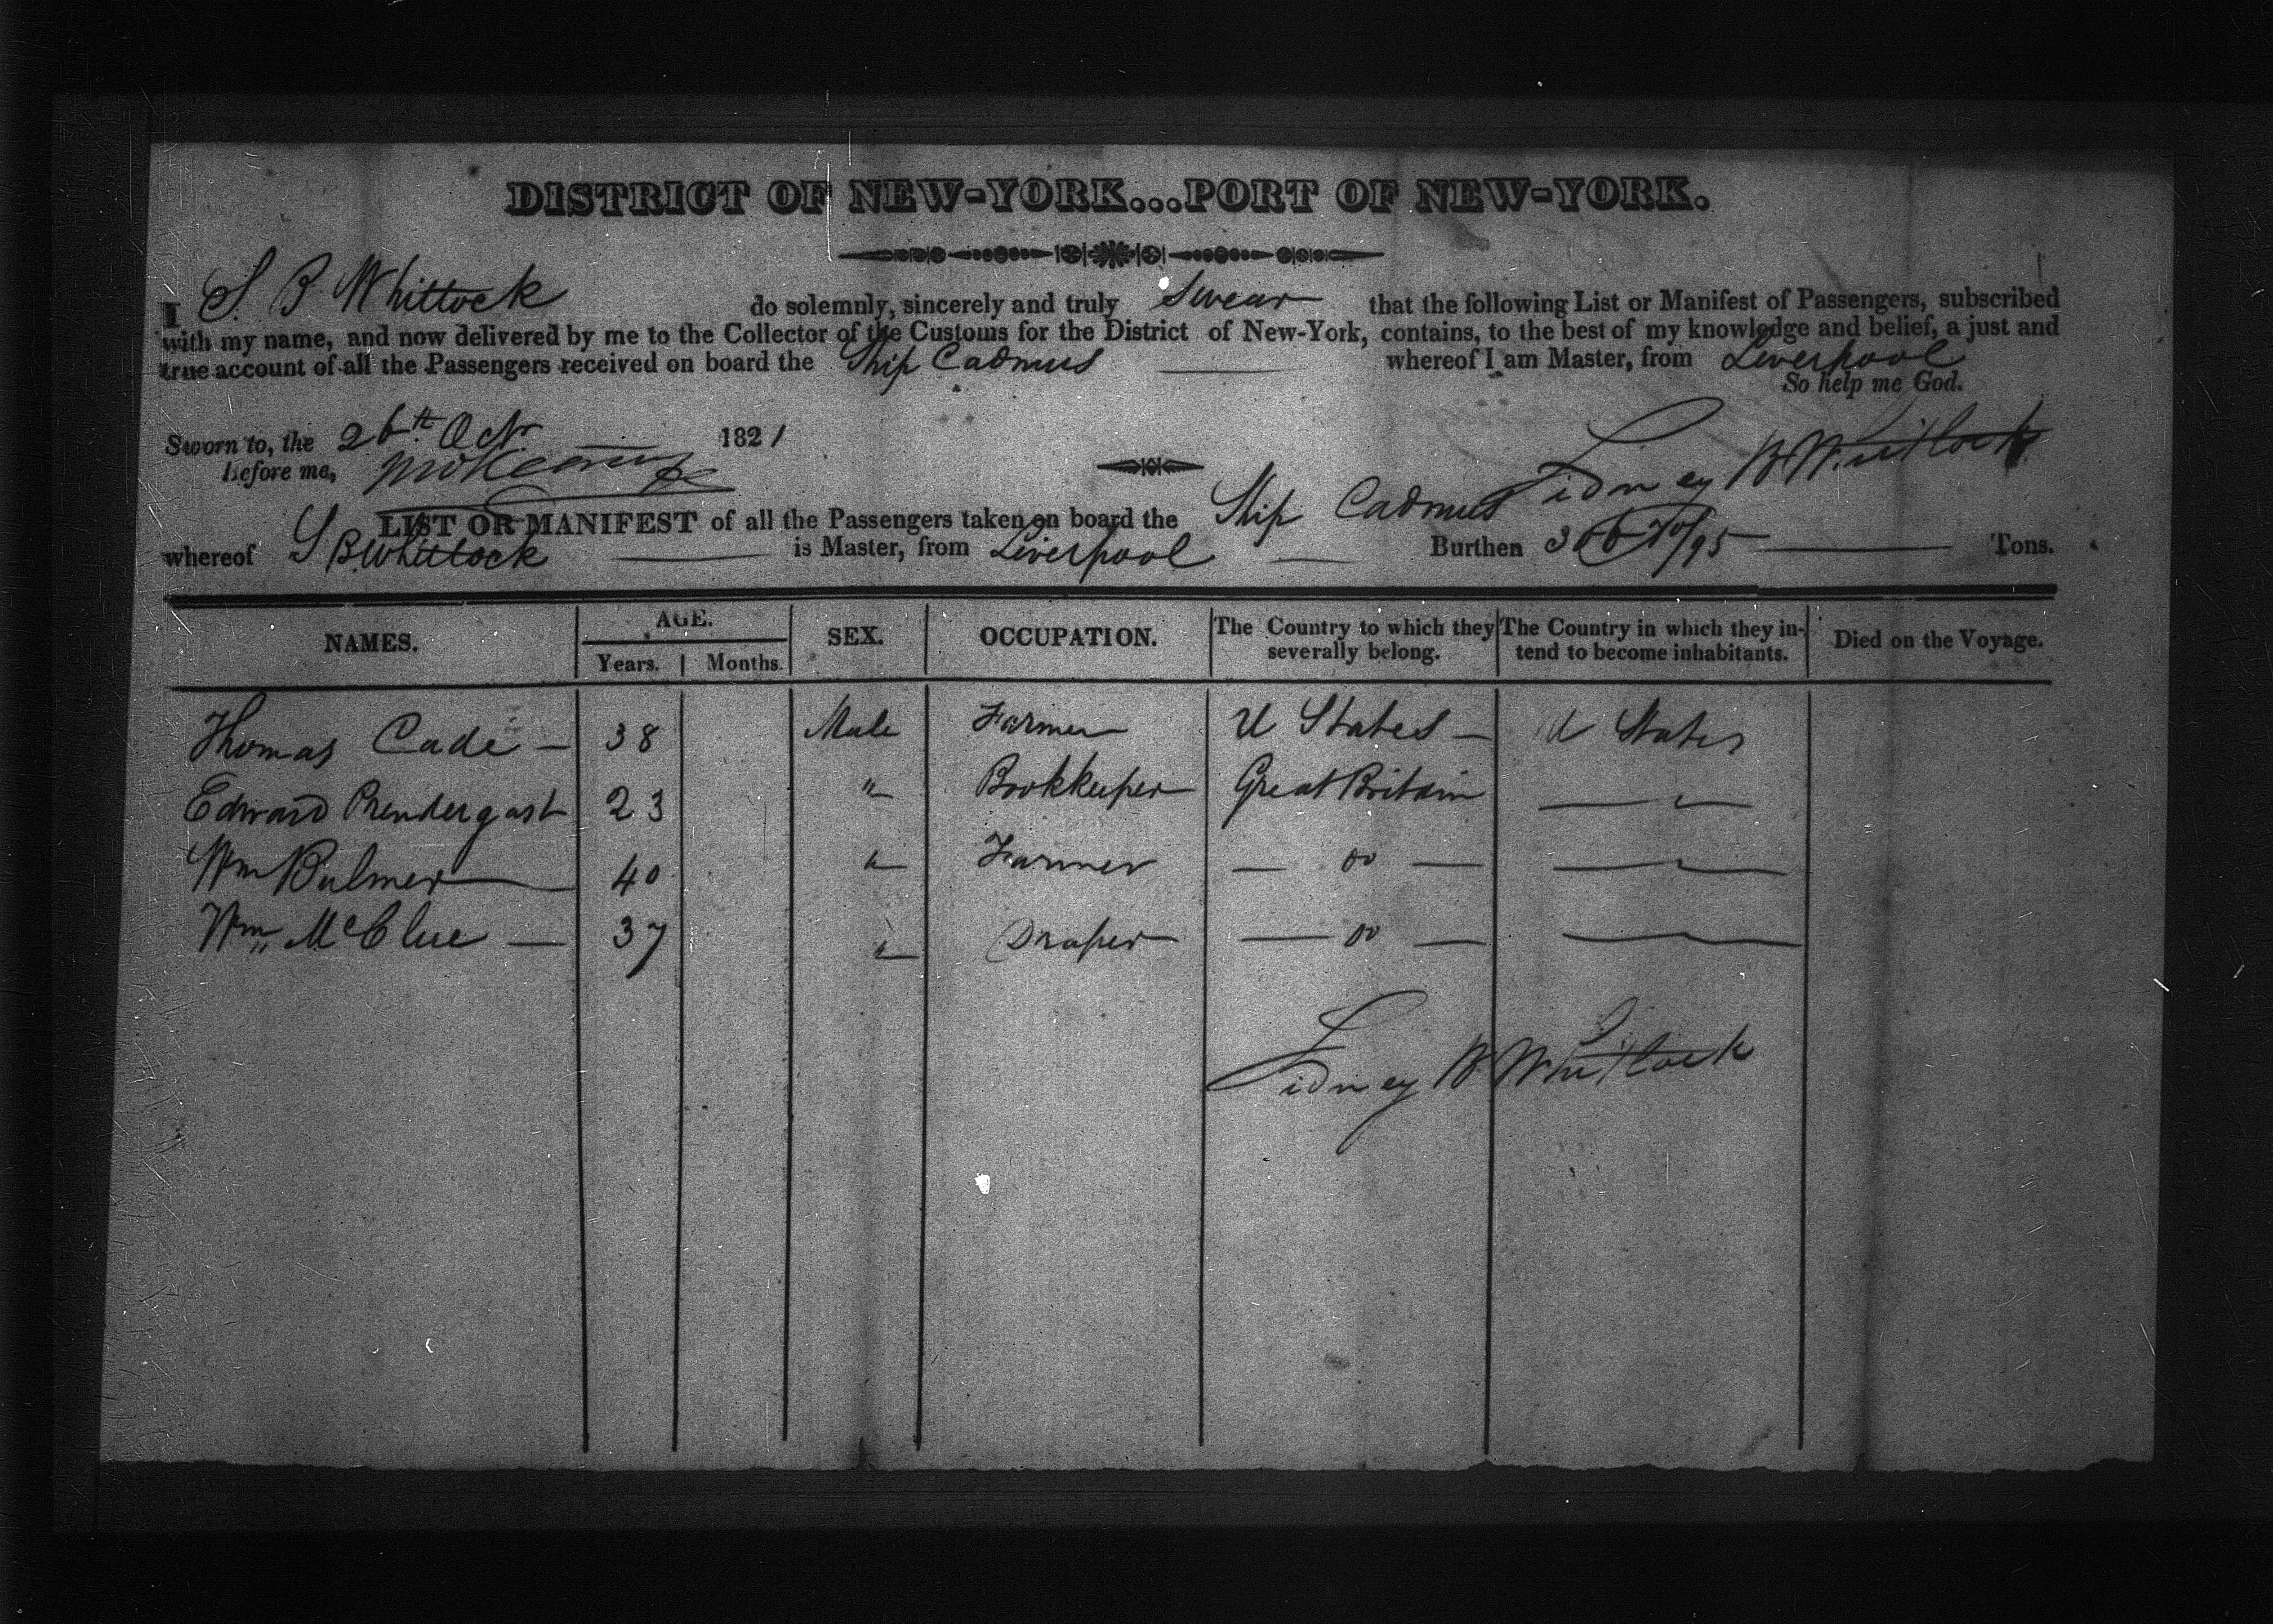 DISTRICT OF NEW-YORK...PORT OF NEW-YORK.
I S. B. Whitlock do solemnly, sincerely and truly Swear that the following List or Manifest of Passengers, subscribed
with my name, and now delivered by me to the Collector of the Customs for the District of New-York, contains, to the best of my knowledge and belief, a just and
true account of all the Passengers received on board the Ship Cadmus whereof I am Master, from Liverpool
So help me God.
Sworn to, the 26th Oct 1821
before me, Sidney B Whitlock
LIST OR MANIFEST of all the Passengers taken on board the Ship Cadmus
whereof S B Whitlock is Master, from Liverpool Burthen /95 Tons.
NAMES. AGE. SEX. OCCUPATION. The Country to which they severally belong. The Country in which they intend to become inhabitants. Died on the Voyage.
Years. Months.
Thomas Cade 38 Male Farmer U States U States
Edward Prendergast 23 " Bookkeeper Great Britain "
Wm Bulmer 40 " Farmer — do — "
Wm McClue — 37 " Draper — do —
Sidney B Whitlock